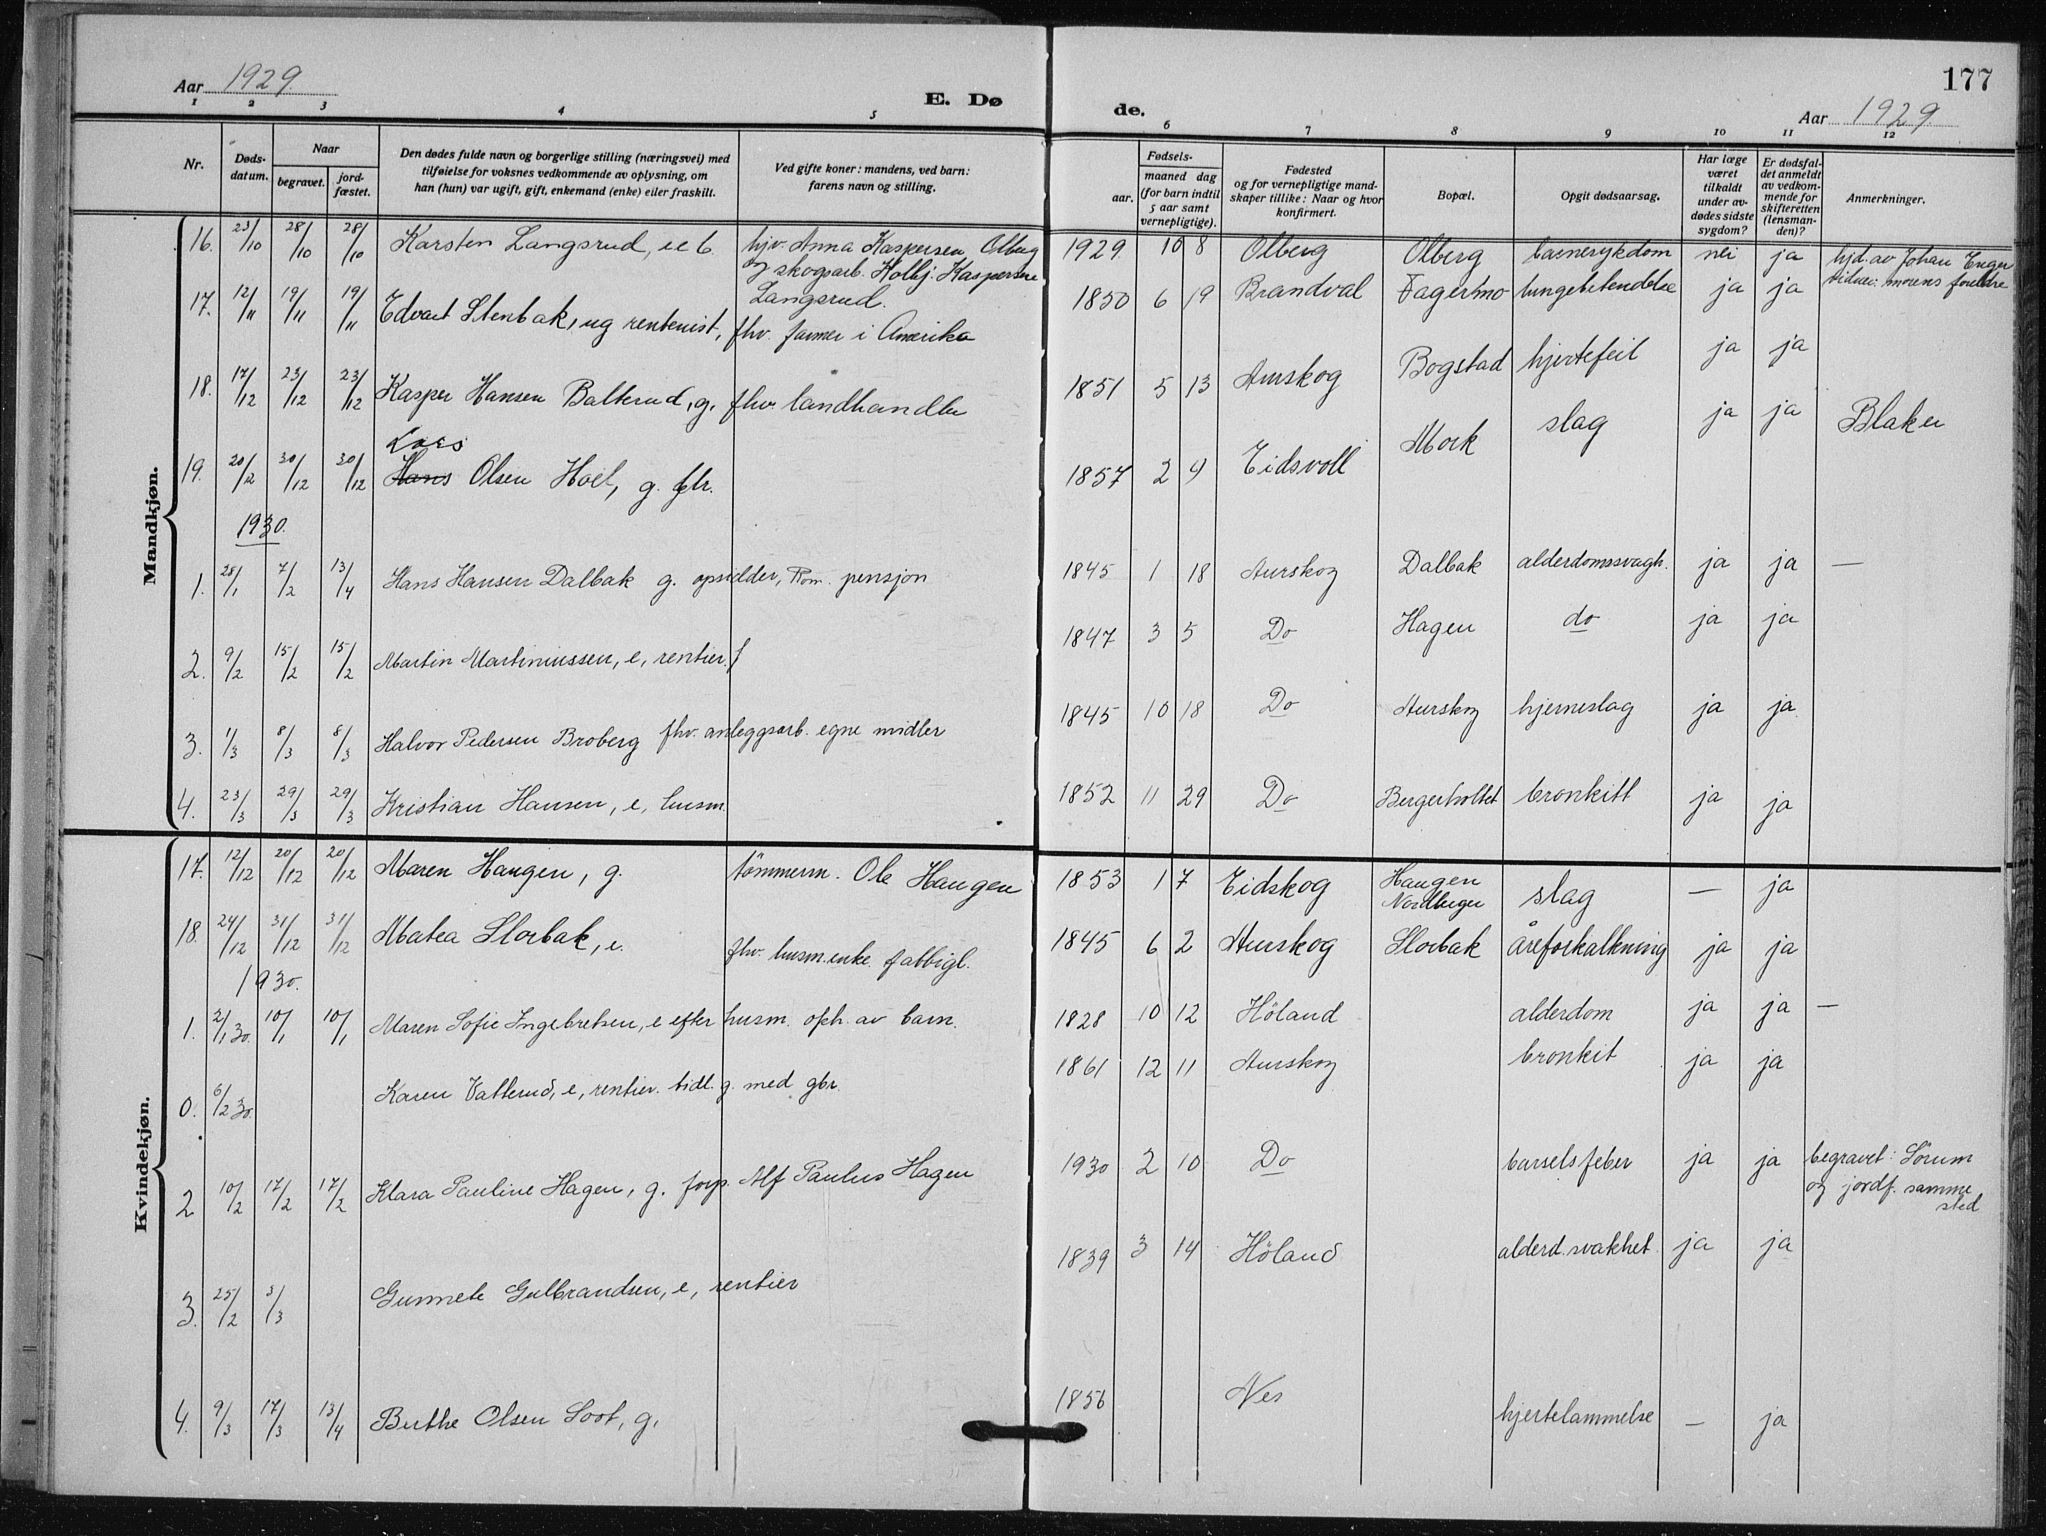 Aar 1929
E. Dø
de.
177
Aar 1929
1 2 3 4 5 6 7 8 9 10 11 12
Nr.
Døds-
datum.
Naar
begravet.
jord-
fæstet.
Den dødes fulde navn og borgerlige stilling (næringsvei) med
tilføielse for voksnes vedkommende av oplysning, om
han (hun) var ugift, gift, enkemand (enke) eller fraskilt.
Ved gifte koner: mandens, ved barn:
farens navn og stilling.
Fødsels-
aar.
maaned dag
(for barn indtil
5 aar samt
vernepligtige).
Fødested
og for vernepligtige mand-
skaper tillike: Naar og hvor
konfirmert.
Bopæl.
Opgit dødsaarsag.
Har læge
været
tilkaldt
under av-
dødes sidste
sygdom?
Er dødsfal-
det anmeldt
av vedkom-
mende for
skifteretten
(lensman-
den)?
Anmerkninger.
Mandkjøn.
16. 23/10 28/10 28/10 Karsten Langsrud, u e b. hjv. Anna Kaspersen Olberg 1929 10 8 Olberg Olberg barnesykdom nei ja hjd. av Johan Enger
og skogsarb. Holbj. Kaspersen
Langsrud.
17. 12/11 19/11 19/11 Edvart Stenbak, ug rentenist, fhv. farmer i Amerika 1850 6 19 Brandval Fagermo lungebetendelse ja ja
18. 17/12 23/12 23/12 Kasper Hansen Balterud, g, fhv. landhandler 1851 5 13 Aurskog Bogstad hjertefeil ja ja
Lars
19. 20/12 30/12 30/12 Hans Olsen Holt, g. gbr. 1857 2 9 Eidsvoll Mork slag ja ja Blaker
1930.
1. 28/1 7/2 13/4 Hans Hansen Dalbak g. opsidder, Kom. pensjon 1845 1 18 Aurskog Dalbak alderdomssvagh. ja ja —
2. 9/2 15/2 15/2 Martin Martiniussen, e, rentier. 1847 3 5 Do Hagen do ja ja
3. 1/3 8/3 8/3 Halvor Pedersen Broberg fhv. anleggsarb. egne midler 1845 10 18 Do Aurskog hjerneslag ja ja
4. 23/3 29/3 29/3 Kristian Hansen, e, husm. 1852 11 29 Do Bergerholtet bronkitt ja ja
Kvindekjøn.
17. 12/12 20/12 20/12 Maren Haugen, g. tömmerm. Ole Haugen 1853 1 7 Eidskog Haugen slag — ja
Nordberger
18. 24/12 31/12 31/12 Matea Slorbak, e. fhv. husm.enke. fattigl. 1845 6 2 Aurskog Slorbak åreforkalkning ja ja
1930.
1. 2/1 30. 10/1 10/1 Maren Sofie Ingebretsen, e efter husm. oph. av barn. 1828 10 12 Höland alderdom ja ja —
0. 6/2 30. Karen Vatterud, e, rentier. tidl. g. med gbr. 1861 12 11 Aurskog bronkit ja ja
2 10/2 17/2 17/2 Klara Pauline Hagen, g. forp. Alf Paulus Hagen 1930 2 10 Do barselsfeber ja ja begravet i Sörum
og jordf. samme
sted
3. 25/2 3/3 Gunnele Gulbrandsen, e, rentier 1839 3 14 Höland alderd.svakhet. ja ja
4. 9/3 17/3 13/4 Berthe Olsen Soot, g. 1856 Nes hjertelammelse — ja